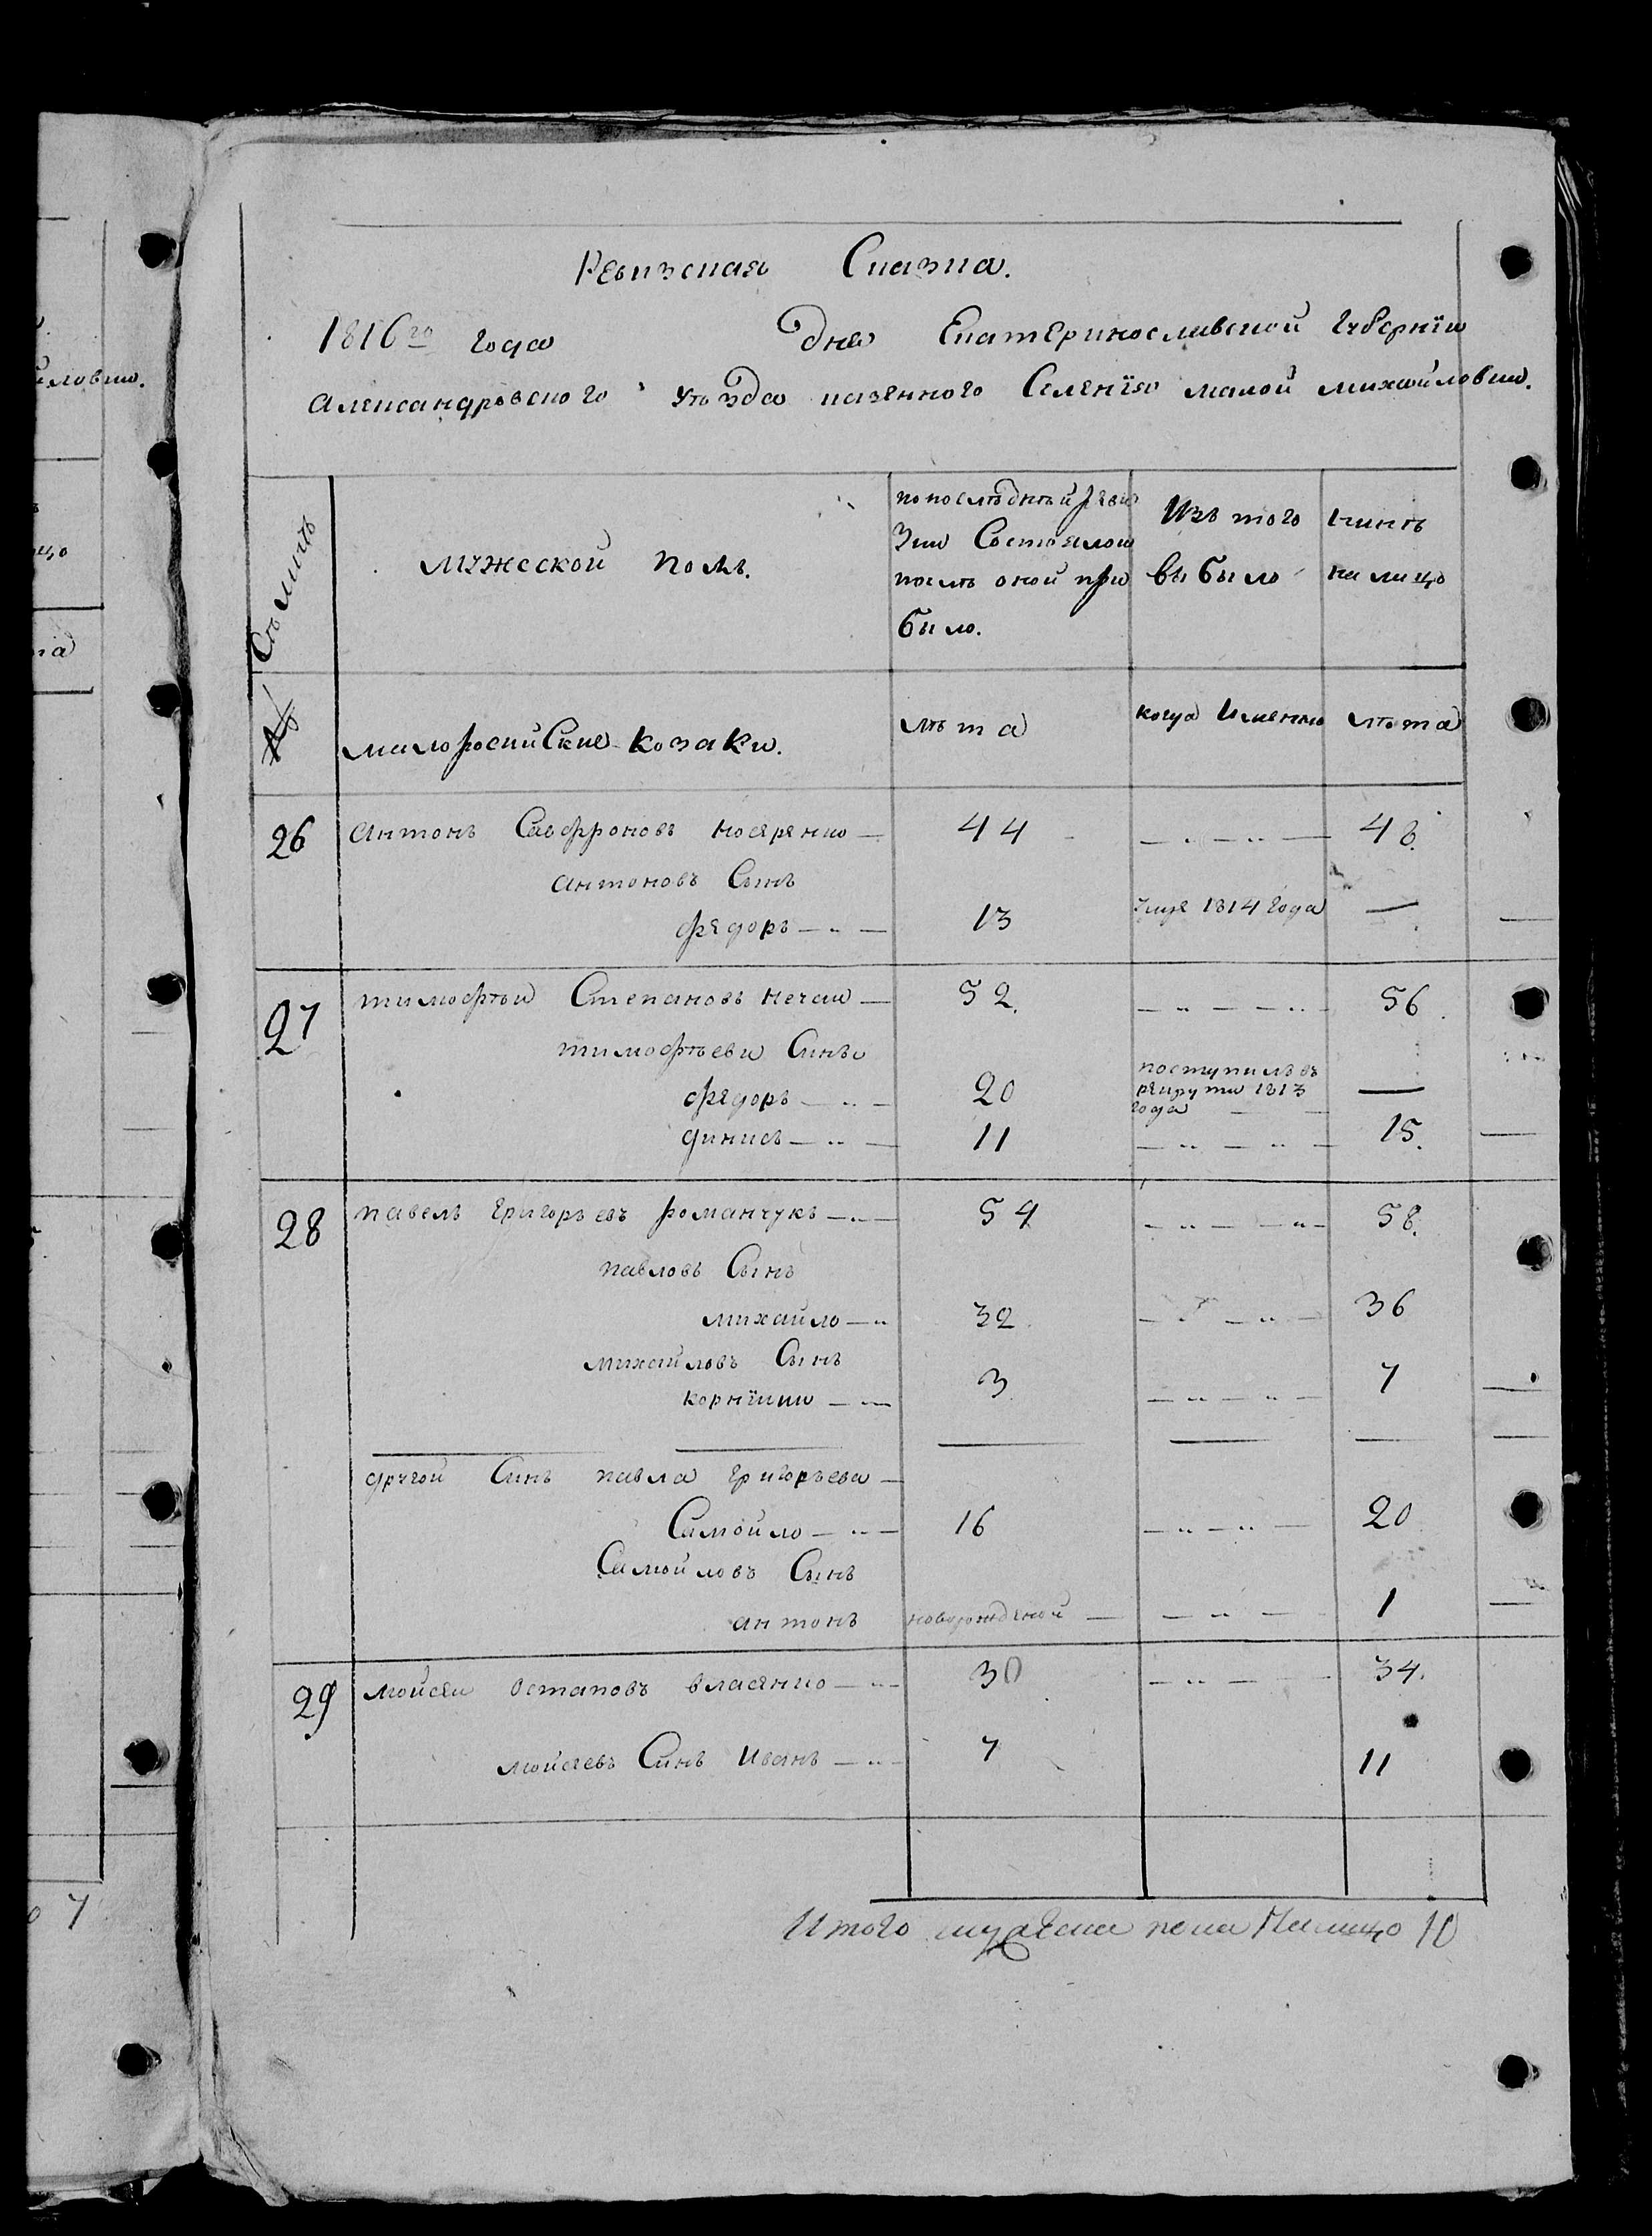 Ревизская Сказка.
1816го года дня Екатеринославской Губернїи
александровского уѣзда казенного Селенїя малой михайловки.
Сѣмиѣ
мужеской полъ.
попослѣдней реви
зии Состояло и
послѣ оной при
было.
Изъ того
выбыло
нинѣ
на лицо
№
малоросийские козаки.
лѣта
когда Именно
лѣта
26 антонъ Сафроновъ носяренко — 44 48.
антоновъ Сынъ
федоръ 13 умре 1814 года —
27 тимофѣи Степановъ нечаи — 52. 56.
тимофѣеви Сины
федоръ 20 поступилъ въ рекруты 1813 года —
динисъ 11 15.
28 павелъ григорьевъ романчукъ 54 58.
павловъ Сынъ
михайло 32 36
михайловъ Сынъ
корнїи 3 7
другой Синъ павла григорьева —
Самойло 16 20
Самойловъ Сынъ
антонъ новорожденой — 1
29 мойсеи остаповъ власенко 30 34.
мойсеевъ Синъ Иванъ 7 11
Итого мужеска пола Налицо 10
7